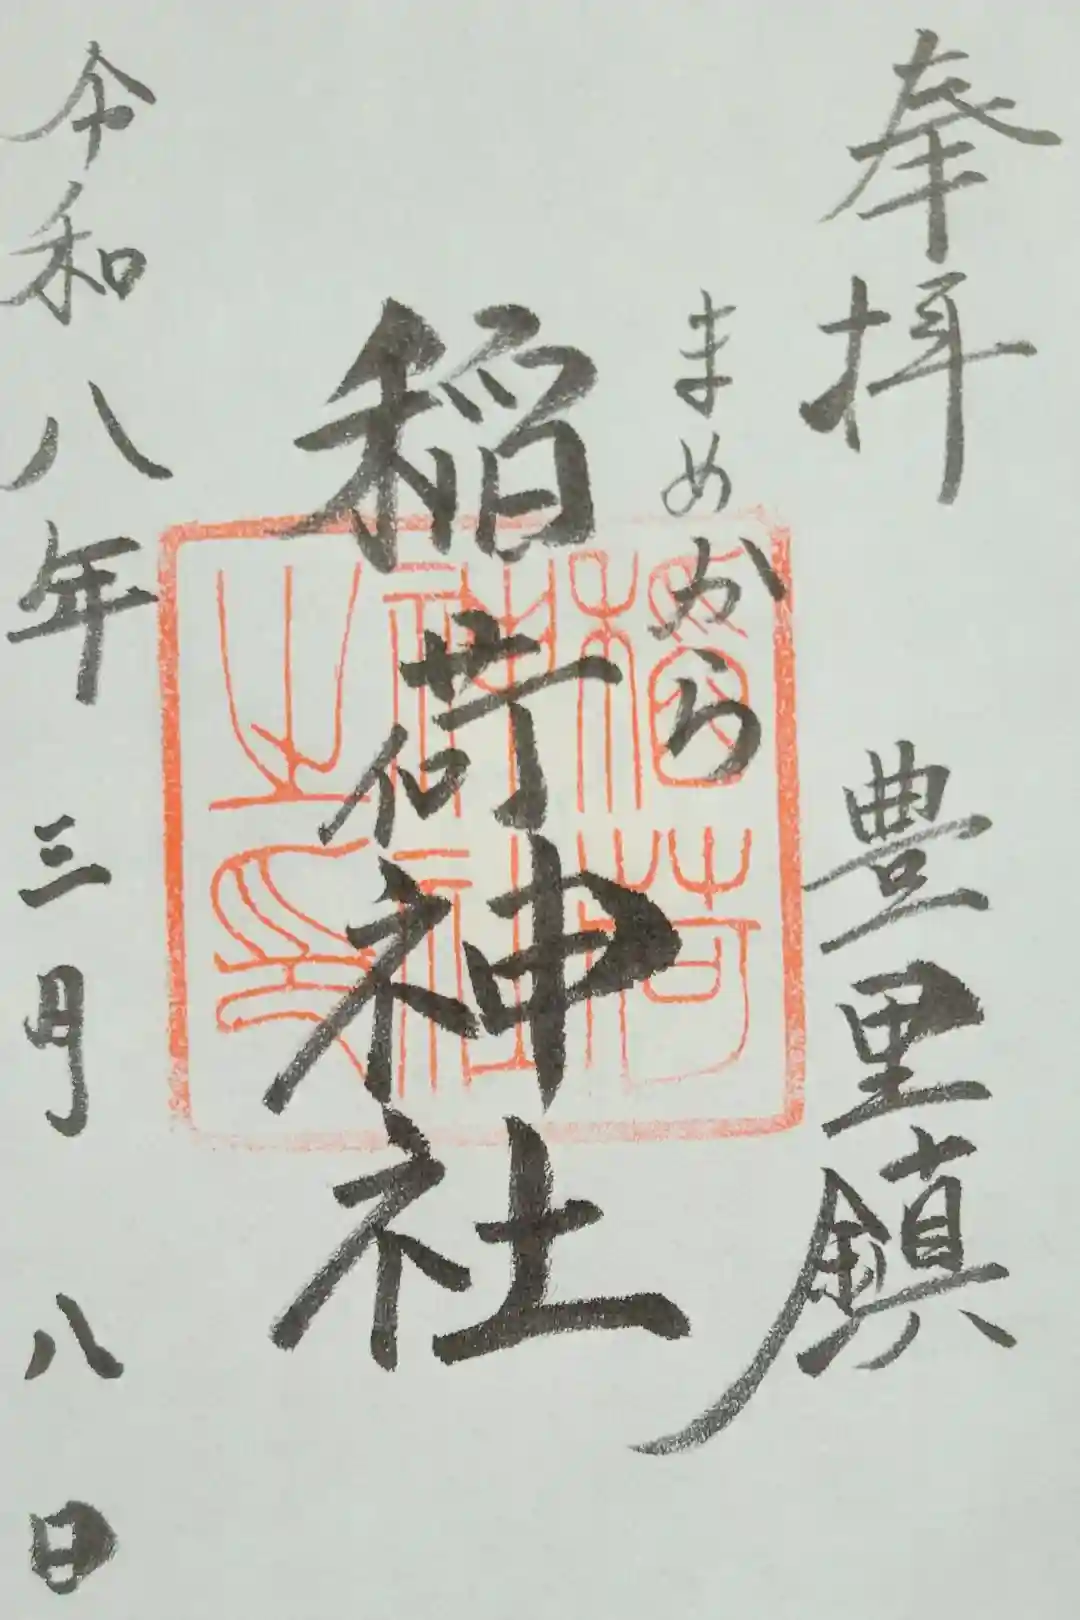 奉拝 豊里鎮
まめから
稲荷神社
令和八年三月八日
稲荷
神社
之印